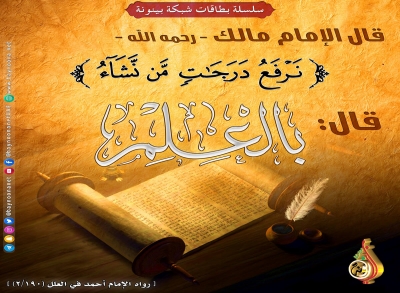 سلسلة بطاقات شبكة بينونة
قال الإمام مالك - رحمه الله -
﴿ نَرْفَعُ دَرَجَاتٍ مَّن نَّشَاءُ ﴾
قال:
بالعِلمِ
[ رواه الإمام أحمد في العلل (٢/١٩٠) ]